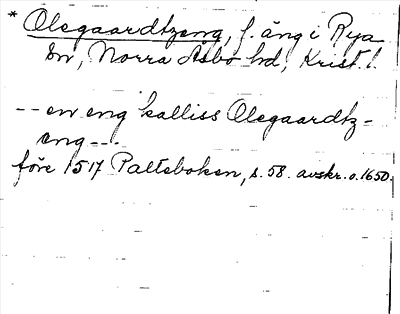 * Olsgaardtzeng, f. äng i Rya
sn, Norra Åsbo hd, Krist. l.
-- en eng kalliss Olsgaardtz-
eng --.
före 1517 Palteboken, s. 58. avskr. o. 1650.